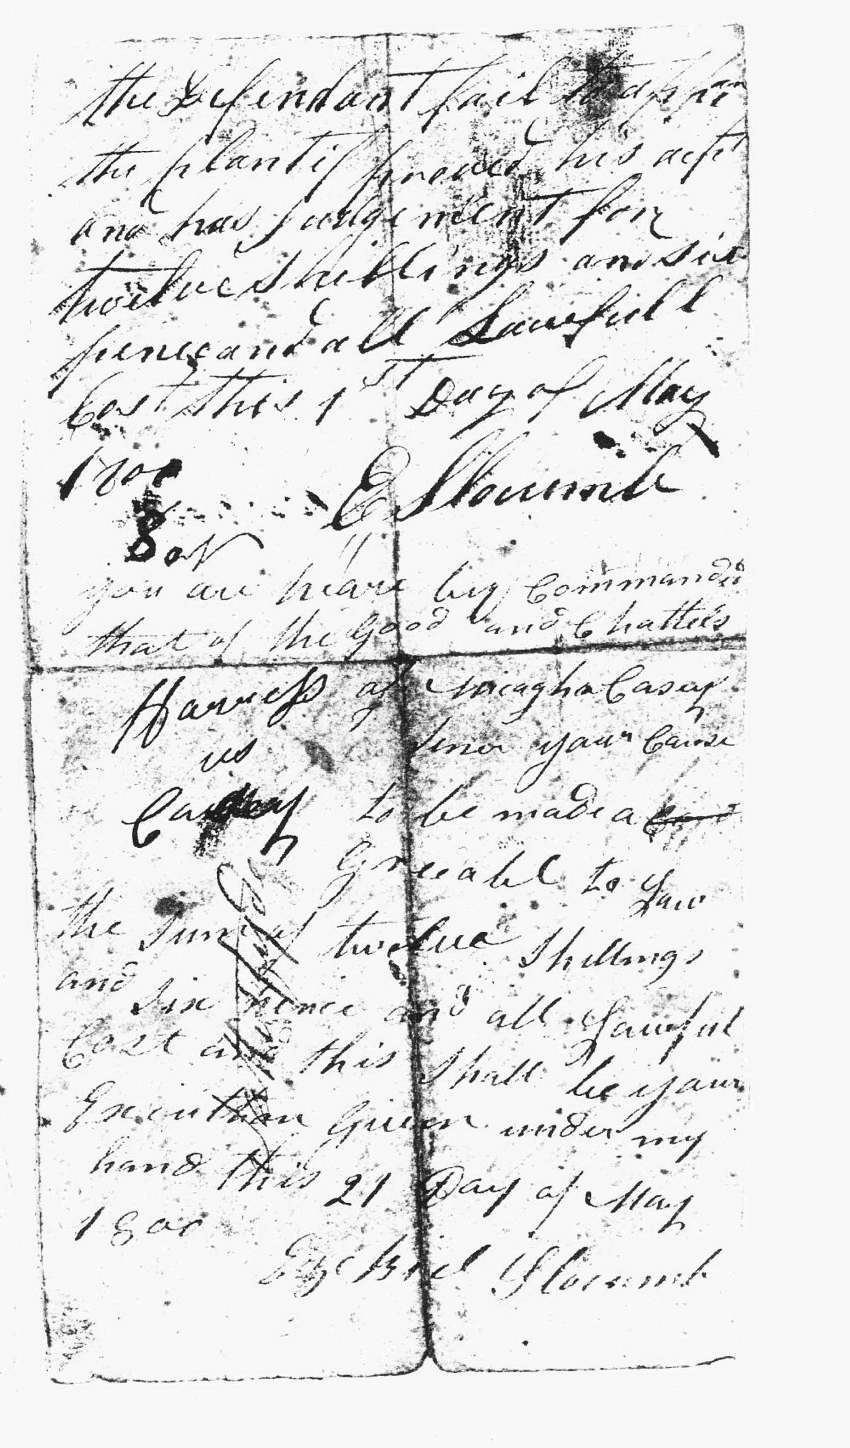 the Defendant fail to appear
the plantif proved his acpt
and has Judgement for
twelve Shillings and six
pence and all Lawfull
Cost this 1st Day of May
1800
E Slocumb
Sor
you are heare by Commanded
that of the Good and Chattels
Harress of Micagha Casey
vs Senr your Cause
Casey to be made a
Greeabl to Law
the Sum of twelve Shillings
and Six pence and all Lawful
Cost and this Shall be your
Execution Given under my
hand this 21 Day of May
1800
Ezekiel Slocumb